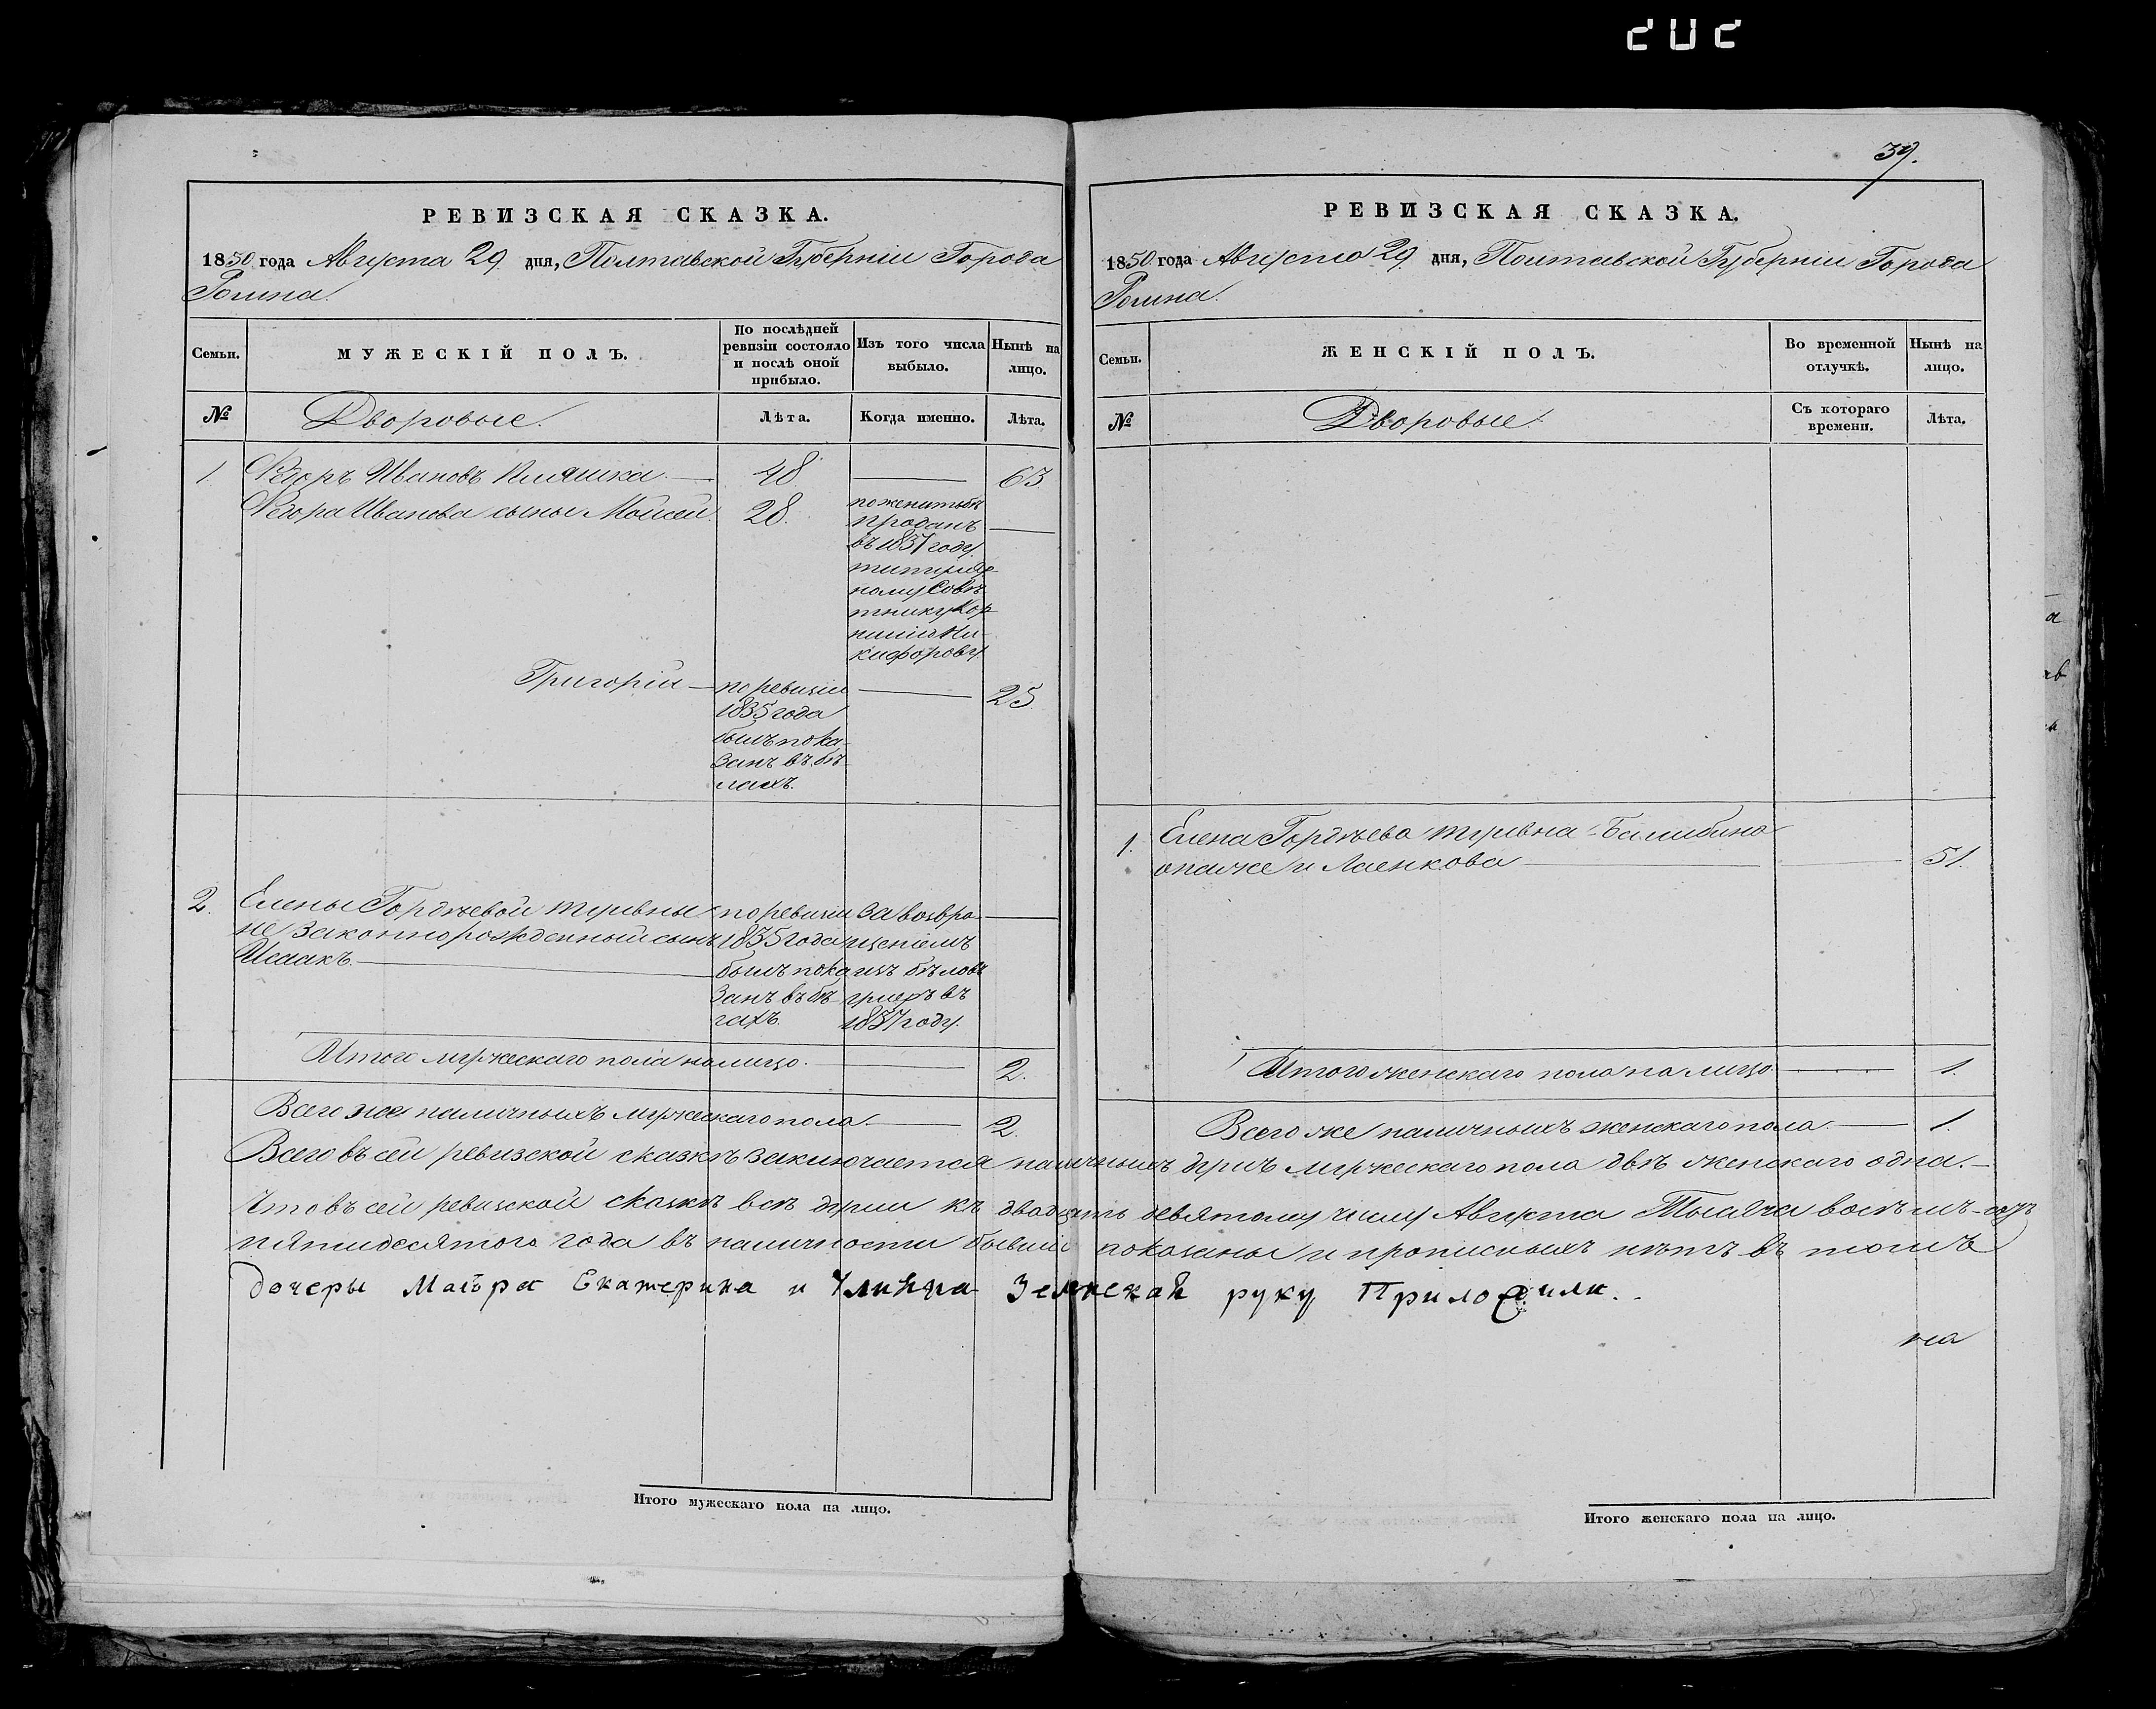 39.
РЕВИЗСКАЯ СКАЗКА.
1850 года Августа 29 дня, Полтавской Губерніи Города
Ромна.
Семьи.
МУЖЕСКІЙ ПОЛЪ.
По послѣдней
ревизіи состояло
и послѣ оной
прибыло.
Изъ того числа
выбыло.
Нынѣ на
лицо.
№
Дворовые.
Лѣта.
Когда именно.
Лѣта.
1. Федоръ Ивановъ 48. 63
Федора Иванова сынъ Моисей 28.
по женитьбѣ
проданъ
въ 1837 году
титуляр-
ному Совѣ-
тнику
Ни-
кифорову
Григорій 25.
по ревизіи
1835 года
былъ пока-
занъ въ бѣ-
гахъ.
2. Елены Гордѣевой
не законнорожденный сынъ
Исаакъ.
по ревизіи
1835 года
былъ пока
занъ въ бѣ-
гахъ.
за возвра-
щеніемъ
изъ бѣговъ
умеръ въ
1837 году.
Итого мужескаго пола на лицо. 2.
Всего же наличныхъ мужескаго пола. 2.
РЕВИЗСКАЯ СКАЗКА.
1850 года Августа 29 дня, Полтавской Губерніи Города
Ромна.
Семьи.
ЖЕНСКІЙ ПОЛЪ.
Во временной
отлучкѣ.
Нынѣ на
лицо.
№
Дворовые.
Съ котораго
времени.
Лѣта.
1. Елена Гордѣева
онаже и 51.
Итого женскаго пола на лицо 1.
Всего же наличныхъ женскаго пола. 1.
Всего въ сей ревизской сказкѣ заключается наличныхъ душъ мужескаго пола двѣ женскаго одна.
Что въ сей ревизской сказкѣ всѣ души къ двадцать девятому числу Августа Тысяча восемъ-сотъ
пятидесятого года въ наличности бывшіе показаны и прописныхъ нѣтъ въ томъ
дочеры Маіора Екатерина и руку Приложили.
на
Итого мужескаго пола на лицо.
Итого женскаго пола на лицо.